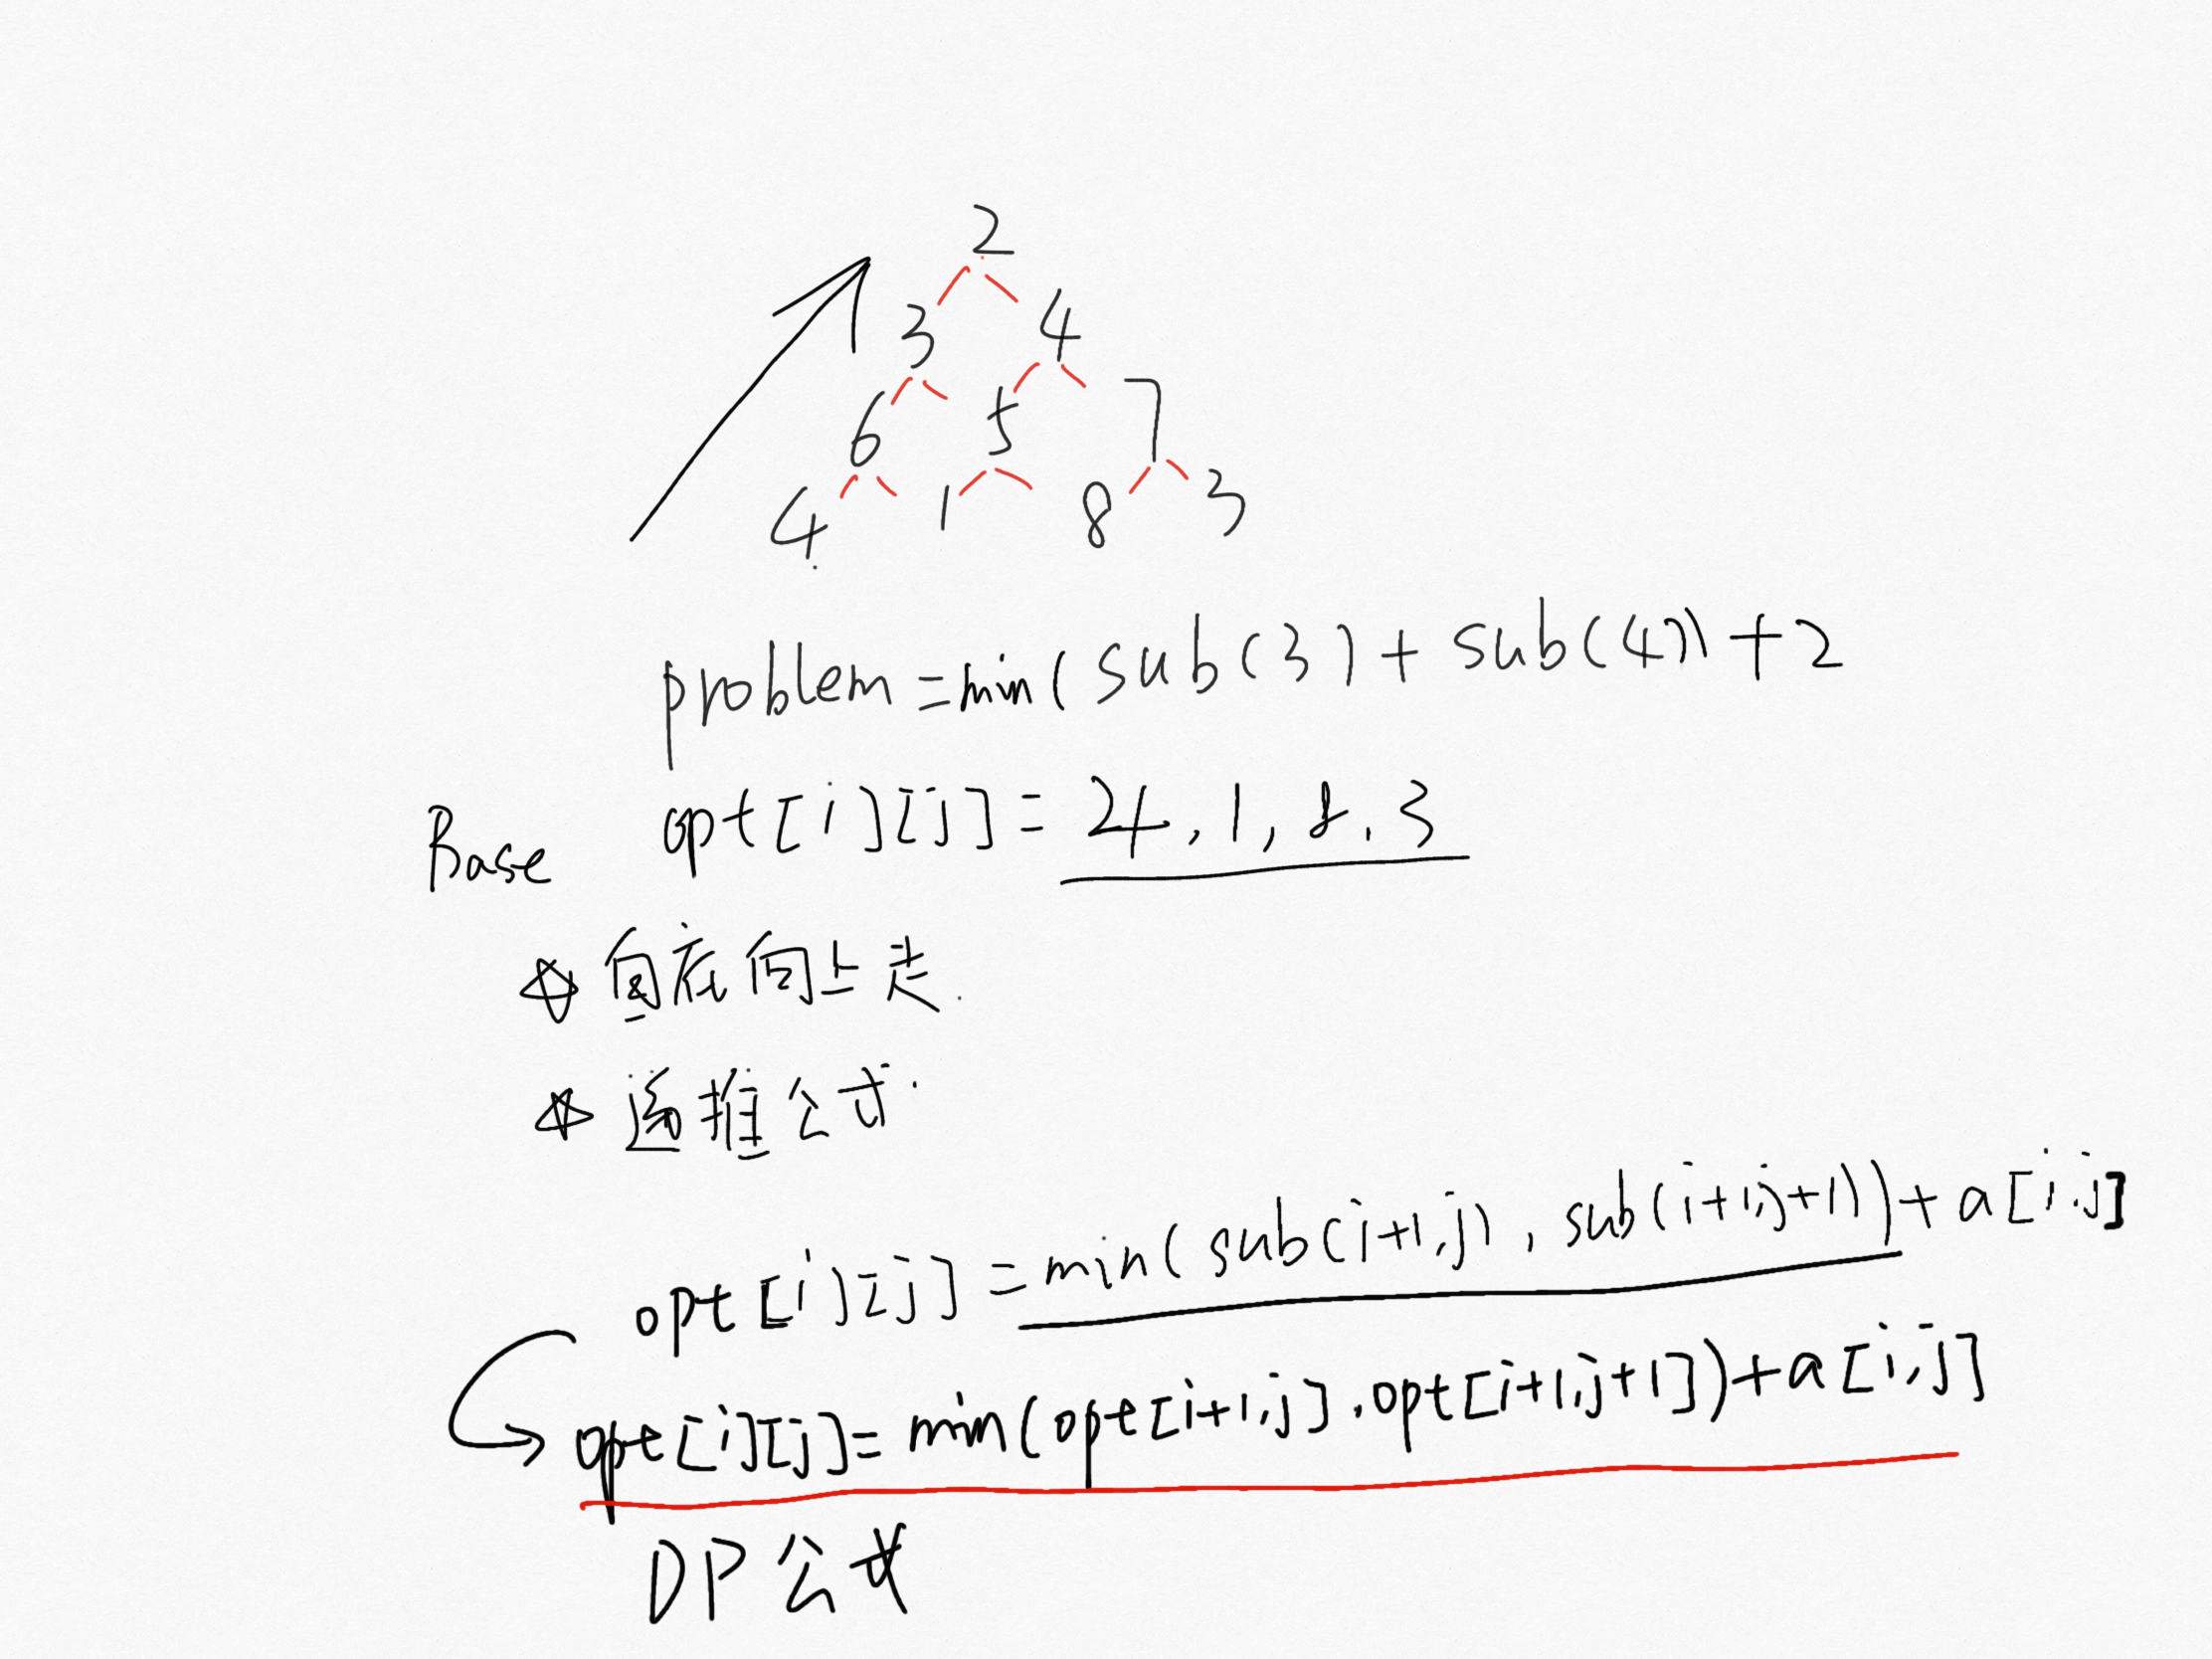 2
3 4
6 5 7
4 1 8 3
problem = min( sub(3) + sub(4)) + 2
Base opt[i][j] = 4, 1, 8, 3
☆ 自底向上走.
☆ 递推公式.
opt[i][j] = min( sub(i+1,j), sub(i+1,j+1)) + a[i,j]
opt[i][j] = min(opt[i+1,j], opt[i+1,j+1]) + a[i,j]
DP公式